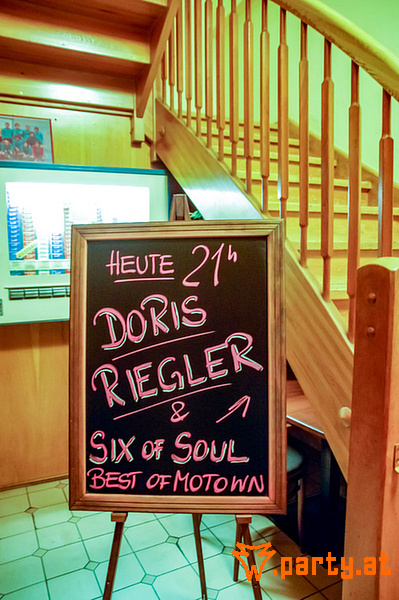 HEUTE 21h
DORIS
RIEGLER
&
SIX OF SOUL
BEST OF MOTOWN
party.at